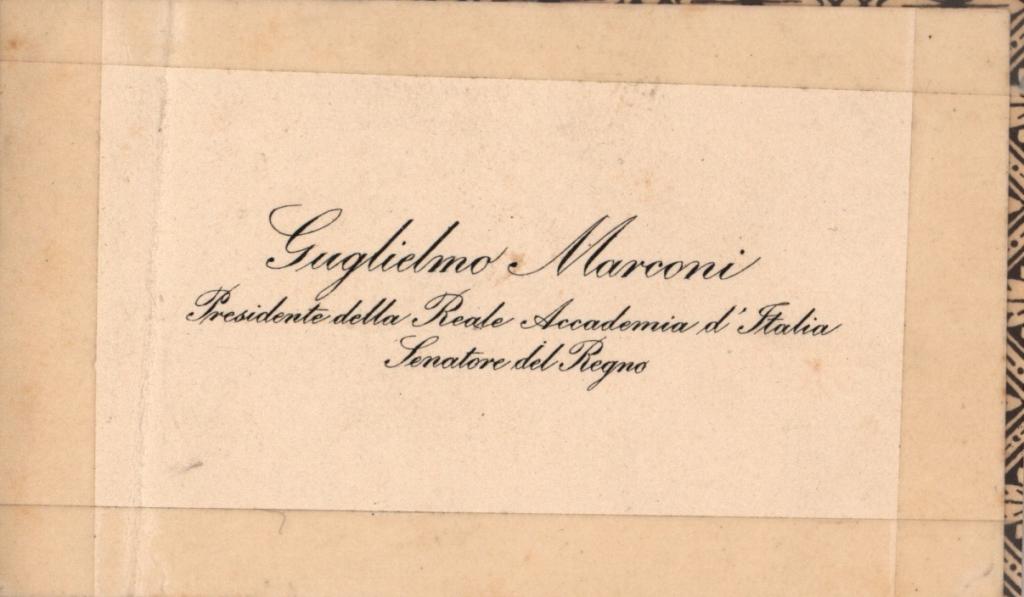 Guglielmo Marconi
Presidente della Reale Accademia d'Italia
Senatore del Regno